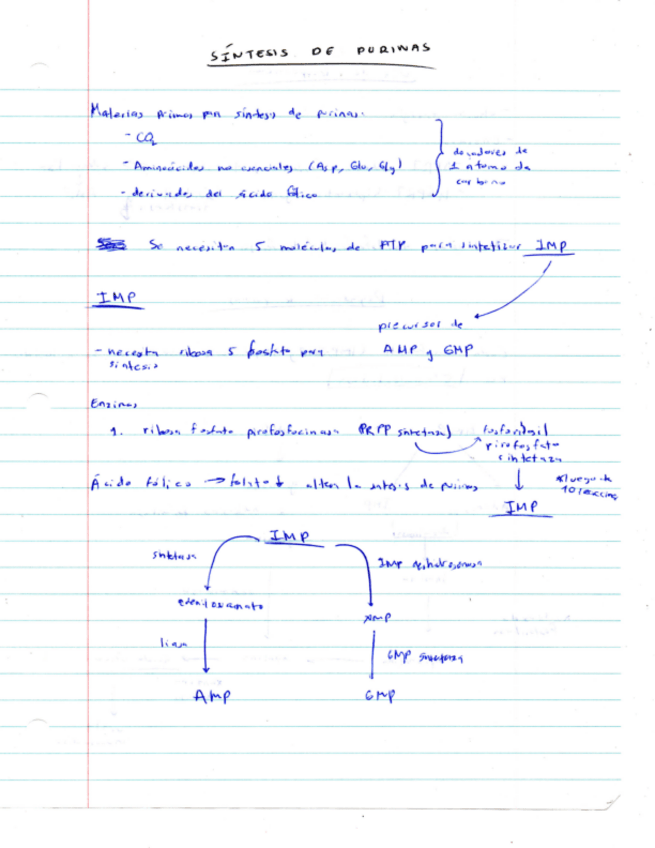 SÍNTESIS DE PURINAS
Materias primas para síntesis de purinas:
- CO2
- Aminoácidos no esenciales (Asp, Glu, Gly)
- derivados del ácido fólico
donadores de
1 átomo de
carbono
Se necesitan 5 moléculas de ATP para sintetizar IMP
IMP
precursor de
AMP y GMP
- necesita ribosa 5 fosfato para
síntesis
Enzimas
1. ribosa fosfato pirofosfocinasa (PRPP sintetasa)
fosforibosil
pirofosfato
sintetasa
Ácido fólico → folato ↓ altera la síntesis de purinas
*luego de
10 reacciones
IMP
IMP
sintetasa
IMP deshidrogenasa
adenilosuccinato
XMP
liasa
GMP sintetasa
AMP
GMP